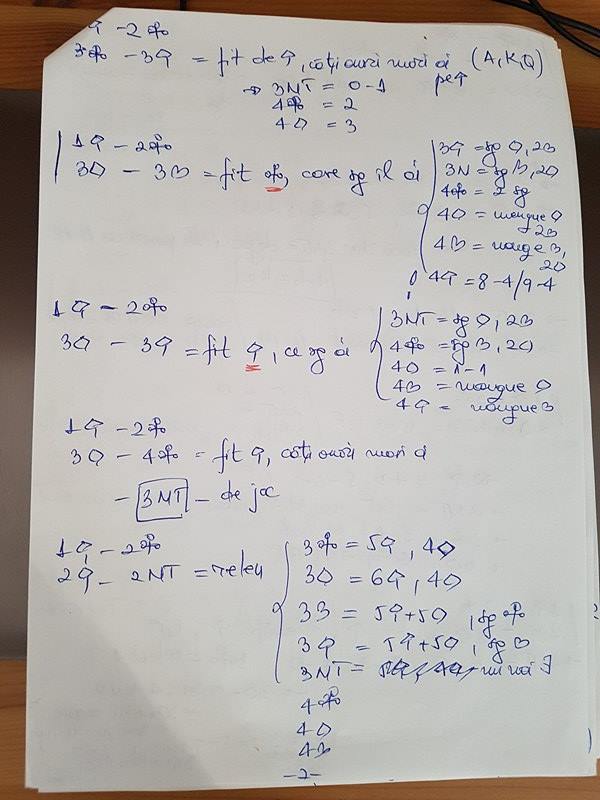 1♠ – 2♣
3♣ – 3♠ = fit de ♠, câți onori mari ai (A,K,Q)
pe ♠
→ 3NT = 0-1
4♣ = 2
4♦ = 3
1♠ – 2♣
3♦ – 3♥ = fit ♣, care sg îl ai
3♠ = sg ♦, 2♥
3N = sg ♥, 2♦
4♣ = 2 sg
4♦ = manque ♦
2♥
4♥ = manque ♥,
2♦
! 4♠ = 8-4/9-4
1♠ – 2♣
3♦ – 3♠ = fit ♠, ce sg ai
3NT = sg ♦, 2♥
4♣ = sg ♥, 2♦
4♦ = 1-1
4♥ = manque ♦
4♠ = manque ♥
1♠ – 2♣
3♦ – 4♣ = fit ♠, câți onori mari ai
– 3NT – de joc
1♠ – 2♣
2♠ – 2NT = releu
3♣ = 5♠, 4♦
3♦ = 6♠, 4♦
3♥ = 5♠+5♦, sg ♣
3♠ = 5♠+5♦, sg ♥
3NT =
4♣
4♦
4♥
–2–